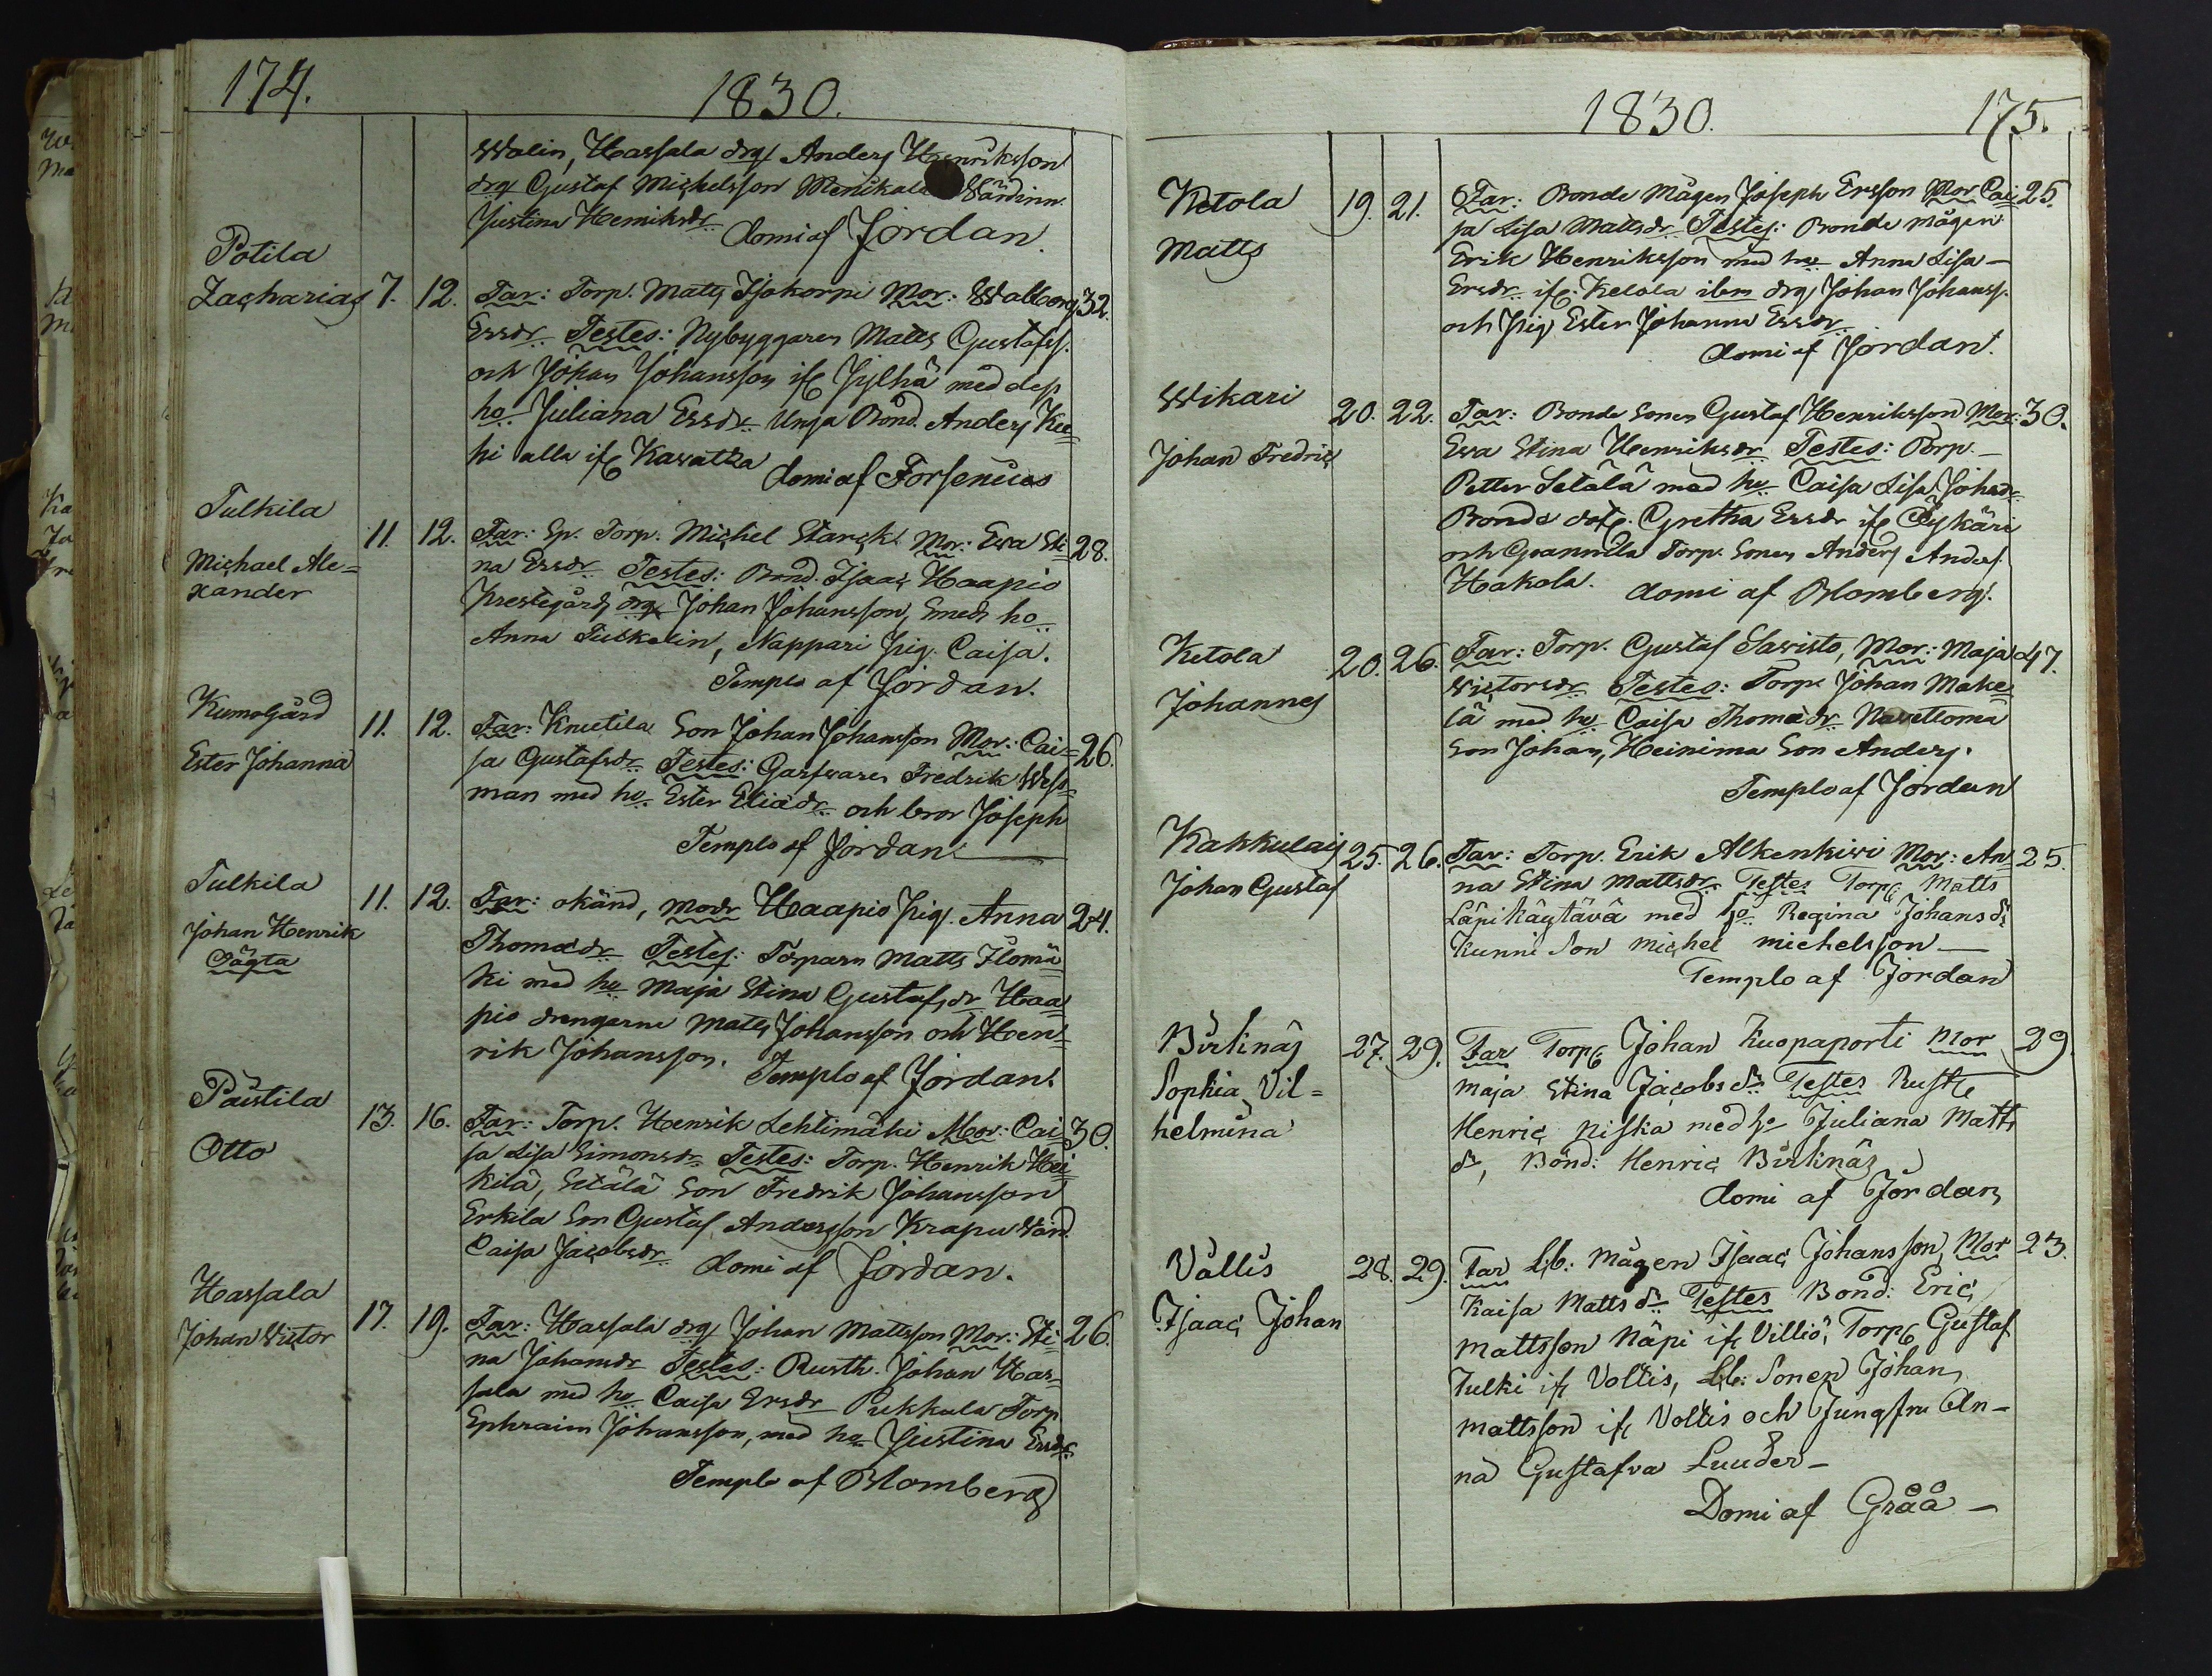 174.
1830.
Walin, Hassala drg Anders Henriksson
drg Gustaf Michelsson Menikala Wärdinn.
Justina Henriksdr domi af Jordan.
Potila
Zacharias 7. 12. Far: Torp. Matts Isokorpi Mor: Walborg 32.
Ersdr Testes: Nybyggaren Matts Gustafss.
och Johan Johansson ifr Jylhä med dess
ho Juliana Ersdr Unga Bond. Anders
ki alla ifr Kawatza domi af Forsenius
Tulkila
Michael Ale=
xander
11. 12. Far: Sp. Torp. Michel Starck Mor: Ewa Sti= 28.
na Ersdr Testes: Bond. Isaac Haapio
Prestegårds drg Johan Johansson, Smeds ho
Anna Tuskelin, Nappari Pig. Caisa.
Templo af Jordan.
Kumogård
Ester Johanna
11. 12. Far: Knutila Son Johan Johansson Mor: Cai= 26.
sa Gustafsdr Testes: Garfwaren Fredrik Wess=
man med ho Ester Eliadr och bror Joseph
Templo af Jordan
Tulkila
Johan Henrik
Oägta
11. 12. Far: okänd, Modr Haapio Pig. Anna 24.
Thomædr Testes: Torparn Matts Ilomä=
ki med ho Maja Stina Gustafsdr Haa=
pio drengarne Matts Johansson och Hen=
rik Johansson. Templo af Jordan.
Paistila
Otto
13. 16. Far: Torp. Henrik Lehtimäki Mor: Cai= 30.
sa Lisa Simonsdr Testes: Torp. Henrik Hei=
kilä, Setälä Son Fredrik Johansson
Erkila Son Gustaf Andersson Krapu Wärd.
Caisa Jacobsdr domi af Jordan.
Hassala
Johan Victor
17. 19. Far: Hassala drg Johan Mattsson Mor: Sti= 26.
na Johansdr Testes: Rusth. Johan Has=
sala med ho Caisa Ersdr Pukkala Torp
Ephraim Johansson, med ho Justina Ersdr
Templo af Blomberg
1830.
175.
Ketola
Matts
19. 21. Far: Bonde Mågen Joseph Ersson Mor Cai= 25.
sa Lisa Mattsdr Testes: Bonde mågen
Erik Henriksson med ho Anna Lisa
Ersdr ifr Ketola ibm drg Johan Johanss.
och Pig Ester Johanna Ersdr
domi af Jordan.
Wikari
Johan Fredric
20. 22. Far: Bonde Sonen Gustaf Henriksson Mor: 30.
Ewa Stina Henriksdr Testes: Torp.
Petter Setälä med ho Caisa Lisa Johsdr
Bonde dotr. Gretha Ersdr ifr
och Torp. Sonen Anders Anders.
Hakola. domi af Blomberg.
Ketola
Johannes
20. 26. Far: Torp. Gustaf Sawisto, Mor: Maja 47.
Victorsdr Testes: Torp. Johan Make=
lä med ho Caisa Thomædr
Son Johan, Heinima Son Anders.
Templo af Jordan
Kakkulais
Johan Gustaf
25. 26. Far: Torp. Erik Alkenkiwi Mor: An= 25.
na Stina Mattsdr Testes Torp: Matts
Läpikäytävä med ho Regina Johansdr
Kunni Son Michel Michelsson
Templo af Jordan
Birkinäs
Sophia Vil=
helmina
27. 29. Far Torp: Johan Kuopaporti Mor 29.
Maja Stina Jacobsdr Testes Rusth
Henric Niska med ho Juliana Matts
dr, Bond: Henric Birknäs
domi af Jordan
Vallis
Isaac Johan
28. 29. Far Lb: Mågen Isaac Johansson, Mor 23.
Kaisa Mattsdr Testes Bond: Eric
Mattsson Näpi ifr Villiö, Torp: Gustaf
Tulki ifr Voltis, Lb: Sonen Johan
Mattsson ifr Voltis och Jungfru An=
na Gustafva Luuder
Domi af Gråå